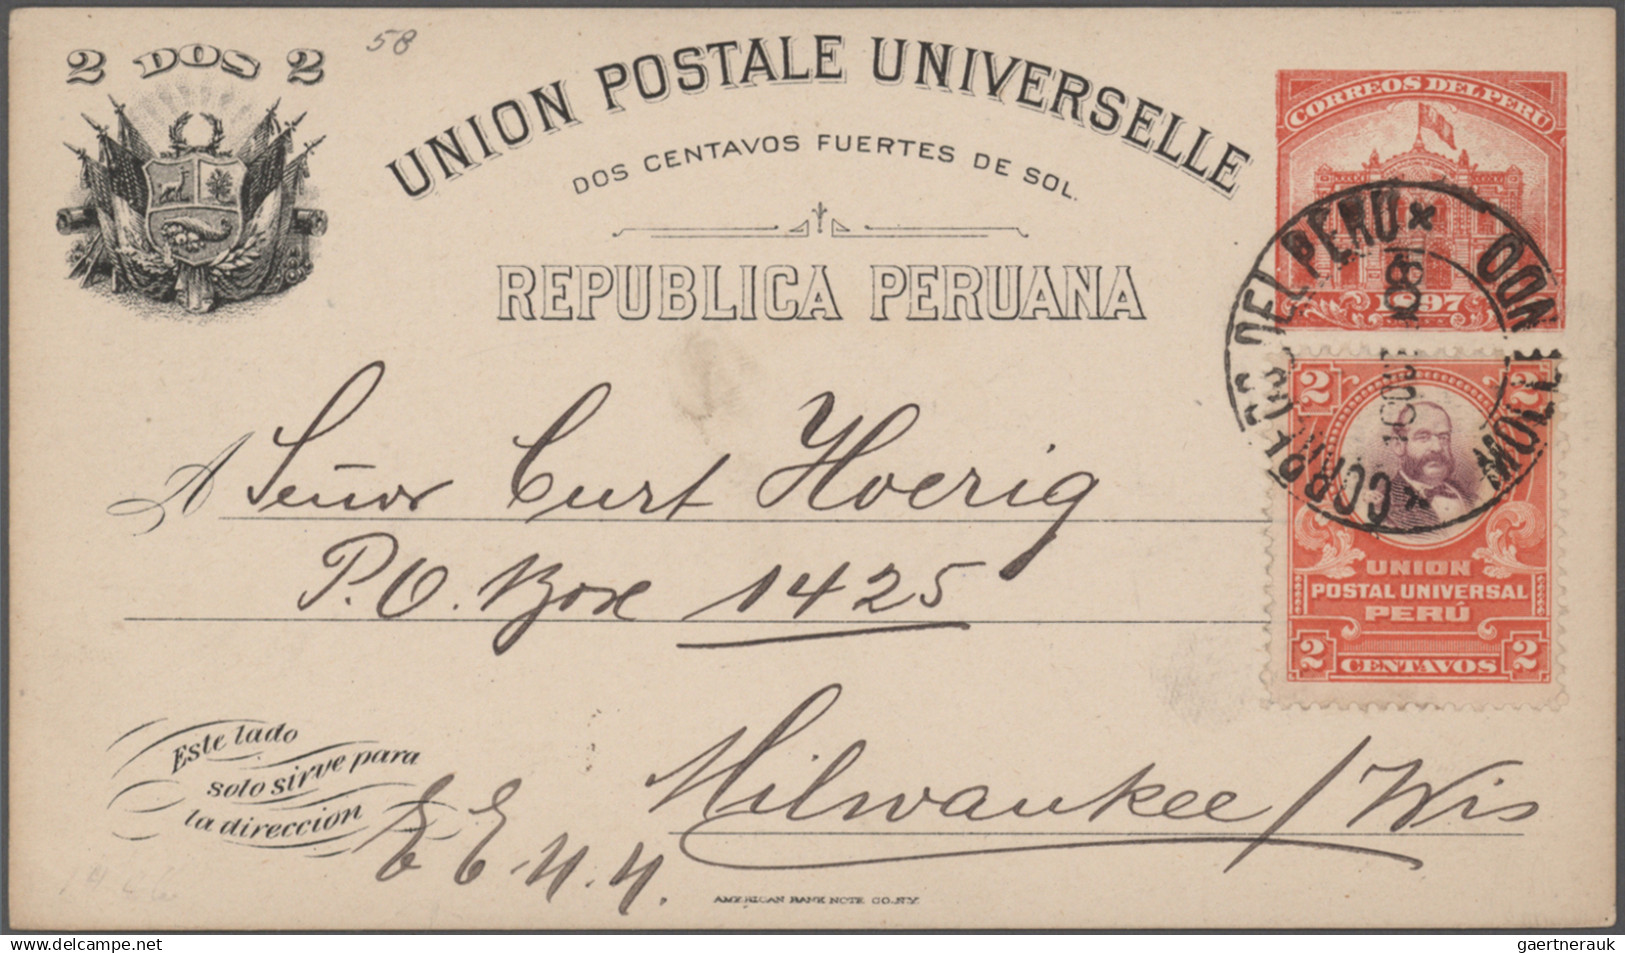 2 DOS 2
58
UNION POSTALE UNIVERSELLE
DOS CENTAVOS FUERTES DE SOL.
REPUBLICA PERUANA
CORREOS DEL PERÚ
1897
CORREOS DEL PERU
MOLLENDO
A Señor Curt Hoerig
P.O. Box 1425
Milwaukee / Wis
E E U. U.
2 2
UNION
POSTAL UNIVERSAL
PERÚ
2 CENTAVOS 2
Este lado
solo sirve para
la direccion
AMERICAN BANK NOTE CO. N.Y.
gaertnerauk@delcampe.net